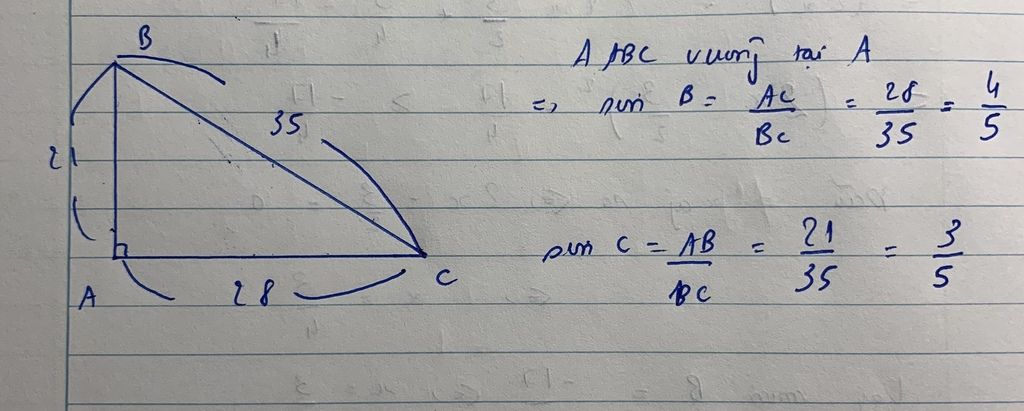 B
35
21
A
28
C
Δ ABC vuông tại A
=> sin B = AC/BC = 28/35 = 4/5
sin C = AB/BC = 21/35 = 3/5